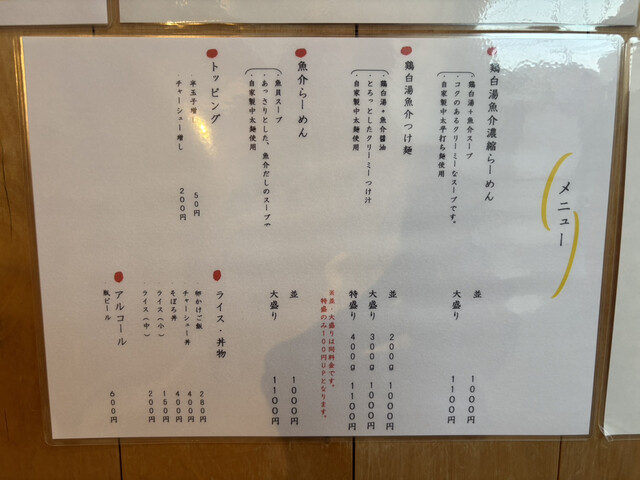 メニュー
鶏白湯魚介濃縮らーめん
鶏白湯+魚介スープ
・コクのあるクリーミーなスープです。
・自家製中太平打ち麺使用
並 1000円
大盛り 1100円
鶏白湯魚介つけ麺
・鶏白湯+魚介醤油
・とろっとしたクリーミーつけ汁
・自家製中太麺使用
並 200g 1000円
大盛り 300g 1000円
特盛り 400g 1100円
※並・大盛りは同料金です。
特盛のみ100円UPとなります。
魚介らーめん
・魚貝スープ
・あっさりとした、魚介だしのスープで
・自家製中太麺使用
並 1000円
大盛り 1100円
トッピング
半玉子増し 50円
チャーシュー増し 200円
ライス・丼物
卵かけご飯 280円
チャーシュー丼 400円
そぼろ丼 400円
ライス(小) 150円
ライス(中) 200円
アルコール
瓶ビール 600円